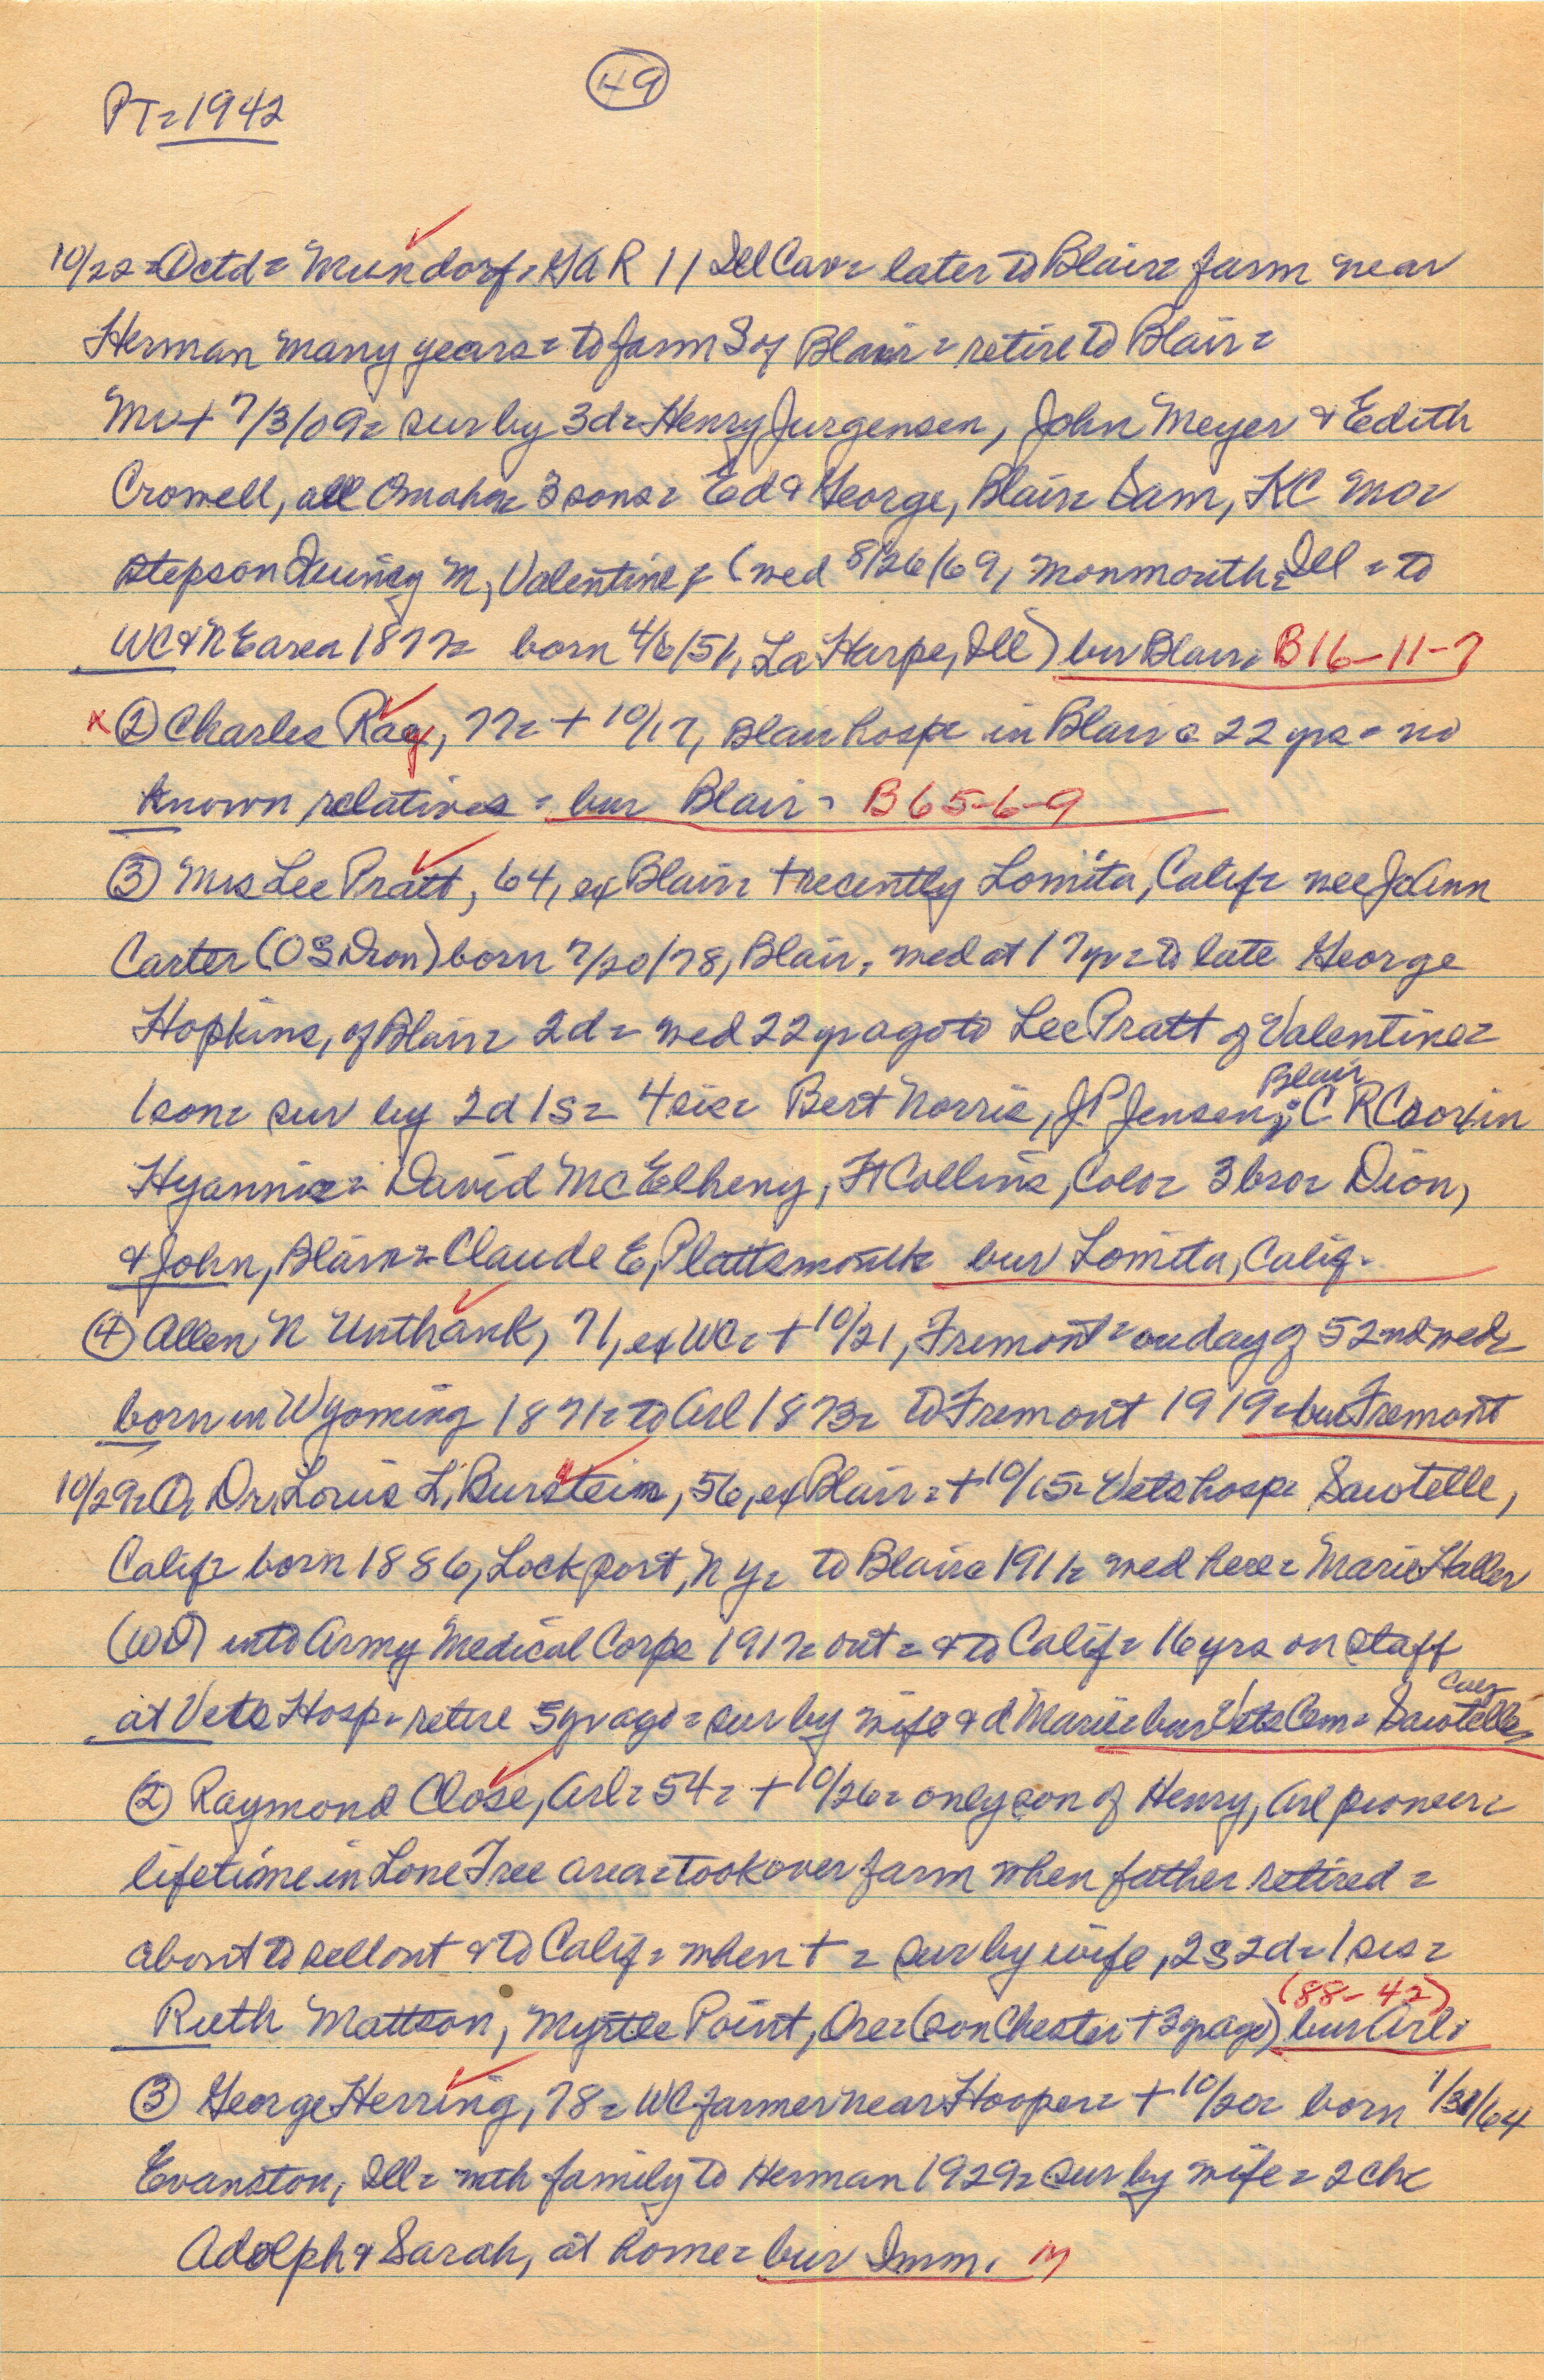 49
PT=1942
10/22=Octd= Mundorf= GAR 11 Ill Cav= later to Blair= farm near
Herman many years= to farm S of Blair= retire to Blair=
Mr + 7/3/09= sur by 3d= Henry Jurgensen, John Meyer & Edith
Crowell, all Omaha= 3 sons= Ed & George, Blair= Sam, KC Mo=
stepson Quincy M, Valentine= (wed 8/26/69, Monmouth, Ill = to
WC & NE area 1877= born 4/6/51, La Harpe, Ill) bur Blair= B16-11-7
x ② Charles Ray, 77= + 10/17, Blair hosp= in Blair= 22 yrs= no
known relatives= bur Blair= B65-6-9
③ Mrs Lee Pratt, 64, ex Blair= + recently Lomita, Calif= nee JoAnn
Carter (OS Dron) born 7/20/78, Blair, wed at 17 yr= to late George
Hopkins, of Blair= 2d= wed 22 yr ago to Lee Pratt of Valentine=
1 son= sur by 2d 1s= 4 sis= Bert Norris, JP Jensen, Blair; C R
Hyannis= David McElheny, Ft Collins, Colo= 3 bro= Dion,
& John, Blair= Claude E, Plattsmouth= bur Lomita, Calif.
④ Allen N Unthank, 71, ex WC= + 10/21, Fremont= on day of 52nd wed=
born in Wyoming 1871= to Arl 1873= to Fremont 1919= bur Fremont
10/29= Dr. Louis L, Burstein, 56, ex Blair= + 10/15= Vets hosp= Sawtelle,
Calif= born 1886, Lockport, NY= to Blair= 1911= wed here= Marie Haller
(WD) into Army Medical Corps 1917= out= & to Calif= 16 yrs on staff
at Vets Hosp= retire 5 yr ago= sur by wife & d Marie= bur Vets Cem= Sawtelle, Calif
② Raymond Close, Arl= 54= + 10/26= only son of Henry, Arl pioneer=
lifetime in Lone Tree area= took over farm when father retired=
about to sell out & to Calif= when + = sur by wife, 2s 2d= 1 sis=
Ruth Mattson, Myrtle Point, Ore= (son Chester + 3 yr ago) bur Arl= (88-42)
③ George Herring, 78= WC farmer near Hooper= + 10/20= born 1/31/64
Evanston, Ill= with family to Herman 1929= sur by wife= 2 ch=
Adolph & Sarah, at home= bur Imm.